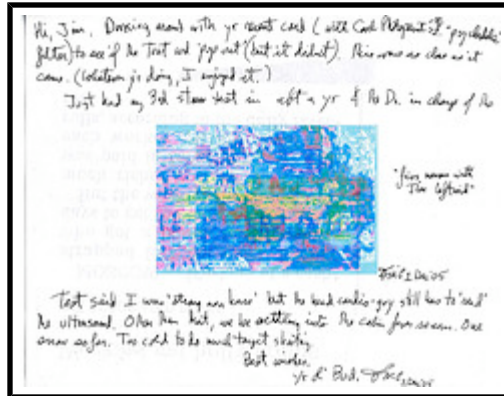 Hi, Jim. Dorking around with yr recent card (with Corel Photopaint's "psychedelic"
filter) to see if the Text wd 'pop out' (but it didn't). This was as close as it
came. (Whatever yr doing, I enjoyed it.)
Just had my 3rd stress test in abt a yr & the Dr. in charge of the
"Jim
with
2 Dec '05
Test said I was 'strong' but the head cardio-guy still has to 'read'
the ultrasound. Other than that, we be settling into the calm for season. One
snow so far. Too cold to do much target
Best wishes,
yr ol' Bud,